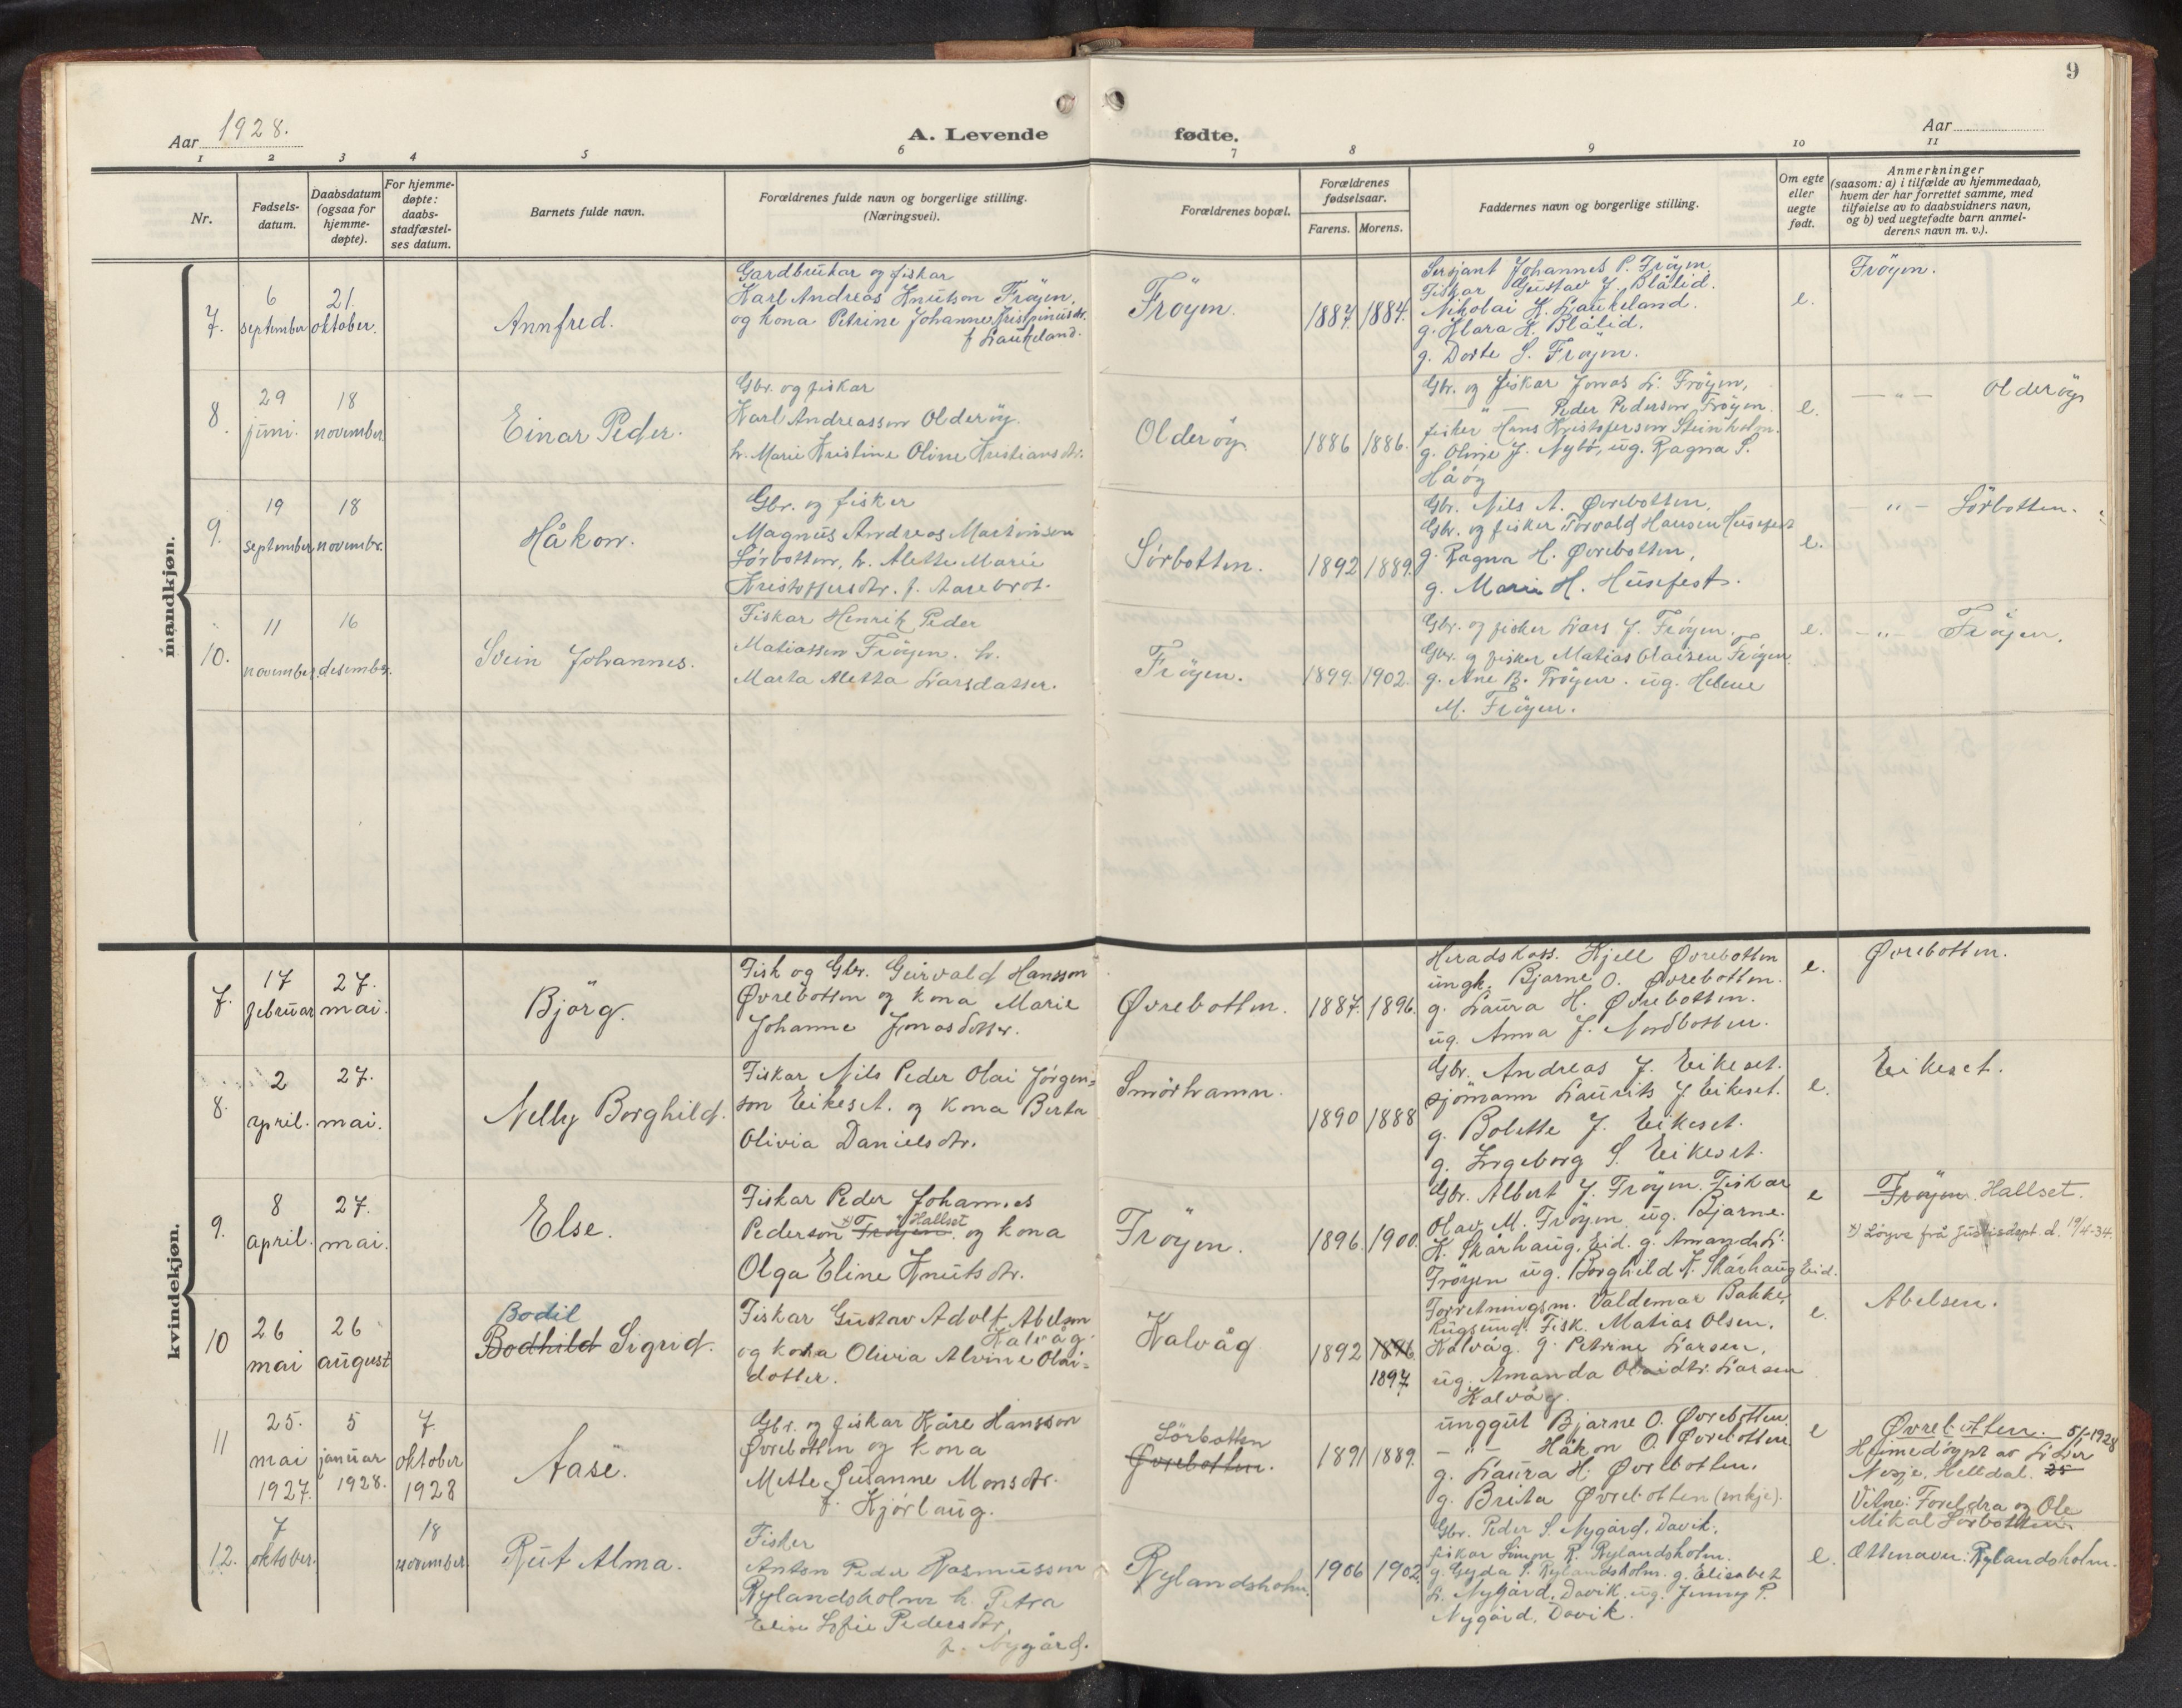 9
Aar 1928.
A. Levende fødte.
Aar
1 2 3 4 5 6 7 8 9 10 11
Nr.
Fødsels-
datum.
Daabsdatum
(ogsaa for
hjemme-
døpte).
For hjemme-
døpte:
daabs-
stadfæstel-
ses datum.
Barnets fulde navn.
Forældrenes fulde navn og borgerlige stilling.
(Næringsvei).
Forældrenes bopæl.
Forældrenes
fødselsaar.
Farens. Morens.
Faddernes navn og borgerlige stilling.
Om egte
eller
uegte
født.
Anmerkninger
(saasom: a) i tilfælde av hjemmedaab,
hvem der har forrettet samme, med
tilføielse av to daabsvidners navn,
og b) ved uegtefødte barn anmel-
derens navn m. v.).
mandkjøn.
7.
6
september
21.
oktober.
Annfred.
Gardbrukar og fiskar
Karl Andreas Knutson Frøyen,
og kona Petrine Johanne Krispinusdr.
f Laukeland.
Frøyen.
1887. 1884.
Sersjant Johannes P. Frøyen
Fiskar Gustav J. Blålid.
Nikolai K. Laukeland.
g. Klara K. Blålid.
g. Dorte S. Frøyen.
e.
Frøyen.
8.
29
juni.
18
november.
Einar Peder.
Gbr. og fiskar
Karl Andreasson Olderøy.
h. Marie Kristine Oline Kristiansdtr.
Olderøy
1886 1886.
Gbr. og fiskar Jonas L. Frøyen,
— " — Peder Pederson Frøyen.
fisker Hans Kristoferson Steinholm.
g. Oline J. Nybø, ug. Ragna S.
Håøy
e.
— " — Olderøy
9.
19
september
18
novembr.
Håkon.
Gbr. og fisker
Magnus Andreas Martinsen
Sørbotten, h. Alette Marie
Kristoffersdtr. f. Aarebrot.
Sørbotten.
1892 1889.
Gbr. Nils A. Øvrebotten,
Gbr. og fisker Torvald Hansen Husefest
g. Ragna H. Øvrebotten,
g. Marie H. Husefest.
e.
" — Sørbotten.
10.
11
november.
16
desember.
Svein Johannes.
Fiskar Henrik Peder
Matiassen Frøyen. h.
Marta Aletta Larsdatter.
Frøyen.
1899. 1902.
Gbr. og fisker Lars J. Frøyen.
Gbr. og fisker Matias Olaisen Frøyen.
g. Ane B. Frøyen. ug. Helene
M. Frøyen.
e.
— " — Frøyen.
kvindekjøn.
7.
17
februar
27.
mai.
Bjørg.
Fisk og Gbr. Geirvald Hansson
Øvrebotten og kona Marie
Johanne Jonasdotter.
Øvrebotten.
1887. 1896.
Heradskass. Kjell Øvrebotten
ungk. Bjarne O. Øvrebotten.
g. Laura H. Øvrebotten.
ug. Anna J. Nordbotten.
e.
Øvrebotten.
8.
2
april.
27.
mai.
Nelly Borghild.
Fiskar Nils Peder Olai Jørgen-
son Eikeset. og kona Berta
Olivia Danielsdtr.
Smørhamn.
1890 1888
Gbr. Andreas J. Eikeset.
sjømann Laurits J Eikeset.
g. Bolette J. Eikeset.
g. Ingeborg S. Eikeset.
e.
Eikeset.
9.
8
april.
27.
mai.
Else.
Fiskar Peder Johannes
Pederson x) Frøyen. Hallset og kona
Olga Eline Knutsdtr.
Frøyen.
1896. 1900.
Gbr. Albert J. Frøyen. Fiskar
Olav M. Frøyen ug. Bjarne.
K. Skårhaug, Eid. g. Amanda L.
Frøyen ug. Borghild K. Skårhaug Eid.
e
Frøyen Hallset.
x) Løyve frå Justisdept. d. 19/4-34.
10
26
mai
26
august
Bodil
Bodhild Sigrid.
Fiskar Gustav Adolf Abelsen
Kalvåg.
og kona Olivia Alvine Olai-
dotter.
Kalvåg
1892 1896.
1897
Forretningsm. Valdemar Bakke,
Rugsund. Fisk. Matias Olsen,
Kalvåg. g. Petrine Larsen,
ug. Amanda Olaidtr. Larsen
Kalvåg.
e.
Abelsen.
11
25.
mai
1927.
5
januar
1928.
7.
oktober
1928
Aase.
Gbr. og fiskar Kåre Hansson
Øvrebotten og kona
Mette Susanne Monsdtr.
f. Kjørlaug.
Sørbotten
Øvrebotten.
1891 1889.
unggut Bjarne O. Øvrebotten.
— " — Håkon O. Øvrebotten
g. Laura H. Øvrebotten.
g. Brita Øvrebotten (enkje).
e
Øvrebotten. 5/1-1928
Heimedøypt av Lærer
Nesje, Helldal. 25
Vitne: Foreldra og Ole
Mikal Sørbotten.
12.
7
oktober.
18
november
Rut Alma.
Fisker
Anton Peder Rasmussen
Rylandsholm h. Petra
Elise Sofie Pedersdtr.
f. Nygård.
Rylandsholm.
1906 1902.
Gbr. Peder S. Nygård, Davik,
fiskar Simon R. Rylandsholm.
g. Gyda S. Rylandsholm. g. Elisabet
L. Nygård, Davik. ug. Jenny P.
Nygård, Davik.
e.
Ættenavn: Rylandsholm.